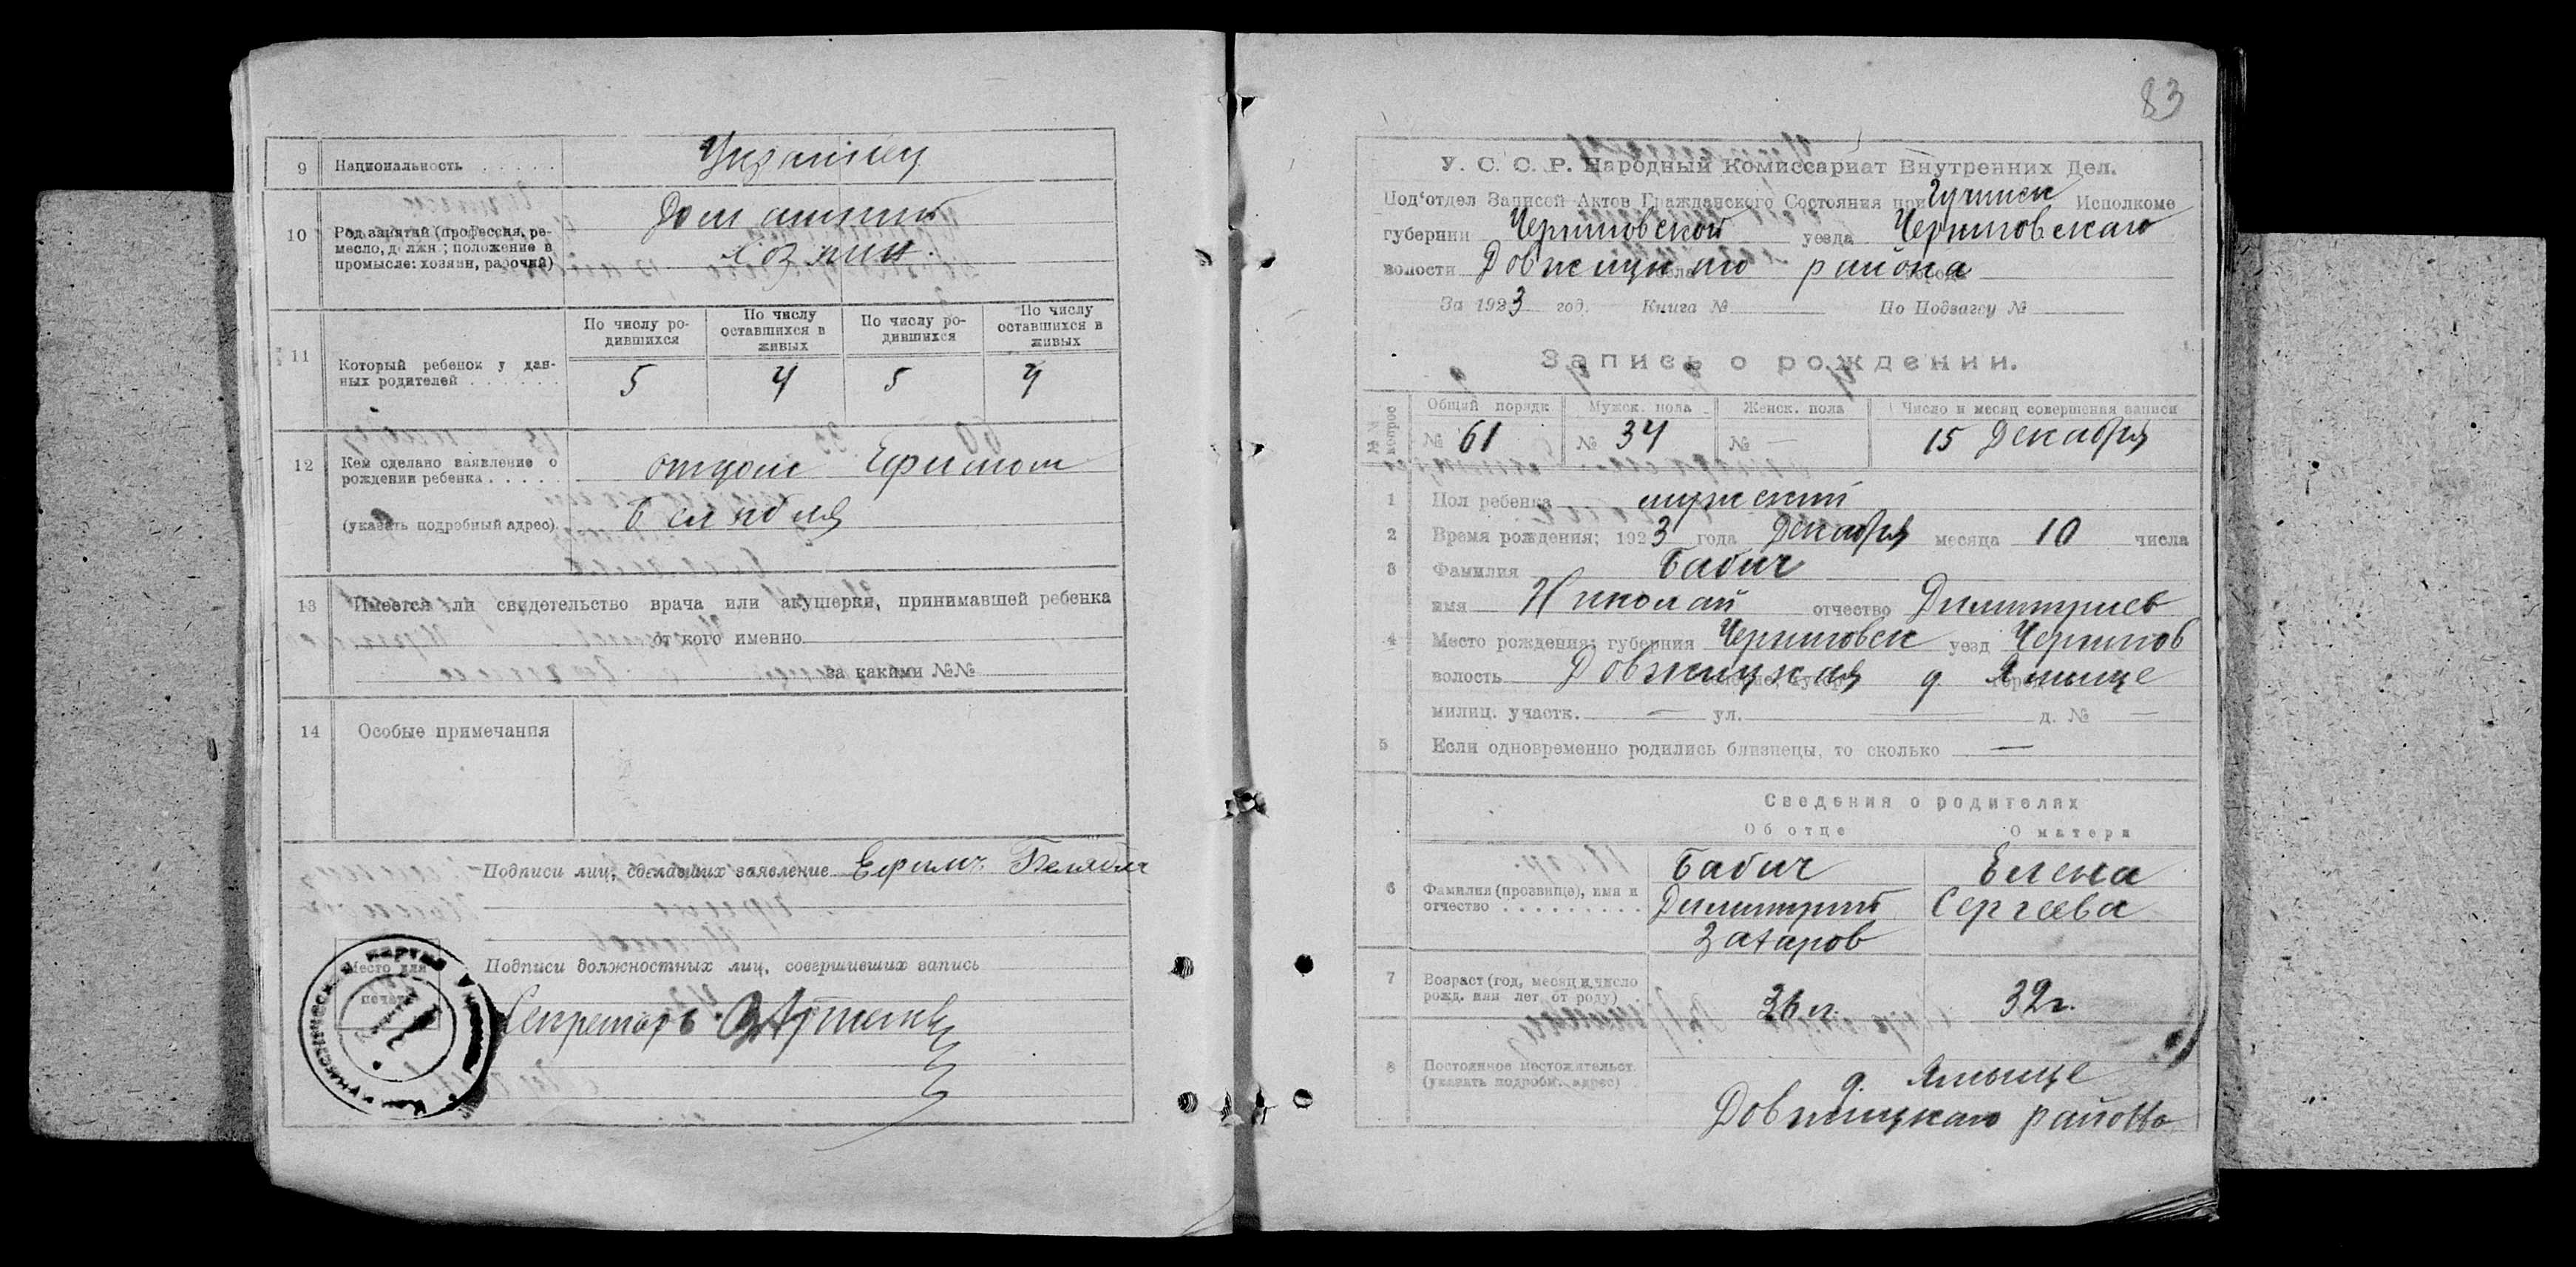 9 Национальность Украинец
10 Род занятий (профессия, ремесло, должн.; положение в промысле: хозяин, рабочий) Домашний
хозяин.
11 Который ребенок у данных родителей
По числу родившихся По числу оставшихся в живых По числу родившихся По числу оставшихся в живых
5 4 5 4
12 Кем сделано заявление о рождении ребенка отцом Ефимом
(указать подробный адрес)
13 Имеется ли свидетельство врача или акушерки, принимавшей ребенка
от кого именно
за какими №№
14 Особые примечания
Подписи лиц, сделавших заявление Ефимъ
Подписи должностных лиц, совершивших запись
Место для печати
Секретарь
83
У. С. С. Р. Народный Комиссариат Внутренних Дел.
Под'отдел Записей Актов Гражданского Состояния при Исполкоме
губернии Черниговской уезда Черниговскаго
волости Довжицкаго района
За 1923 год. Книга № По Подзагсу №
Запись о рождении.
Общий порядк. Мужск. пола Женск. пола Число и месяц совершения записи
№ 61 № 34 № — 15 Декабря
1 Пол ребенка мужский
2 Время рождения: 1923 года Декабря месяца 10 числа
3 Фамилия Бабич
имя Николай отчество Димитриев
4 Место рождения: губерния Черниговск уезд Чернигов
волость Довжицкая д Ямище
милиц. участк. — ул. — д. № —
5 Если одновременно родились близнецы, то сколько —
Сведения о родителях
Об отце О матери
6 Фамилия (прозвище), имя и отчество Бабич Елена
Димитрий Сергеева
Захаров
7 Возраст (год, месяц и число рожд. или лет от роду) 36 л. 32 г.
8 Постоянное местожительст. (указать подробн. адрес) д. Ямище
Довжицкаго района